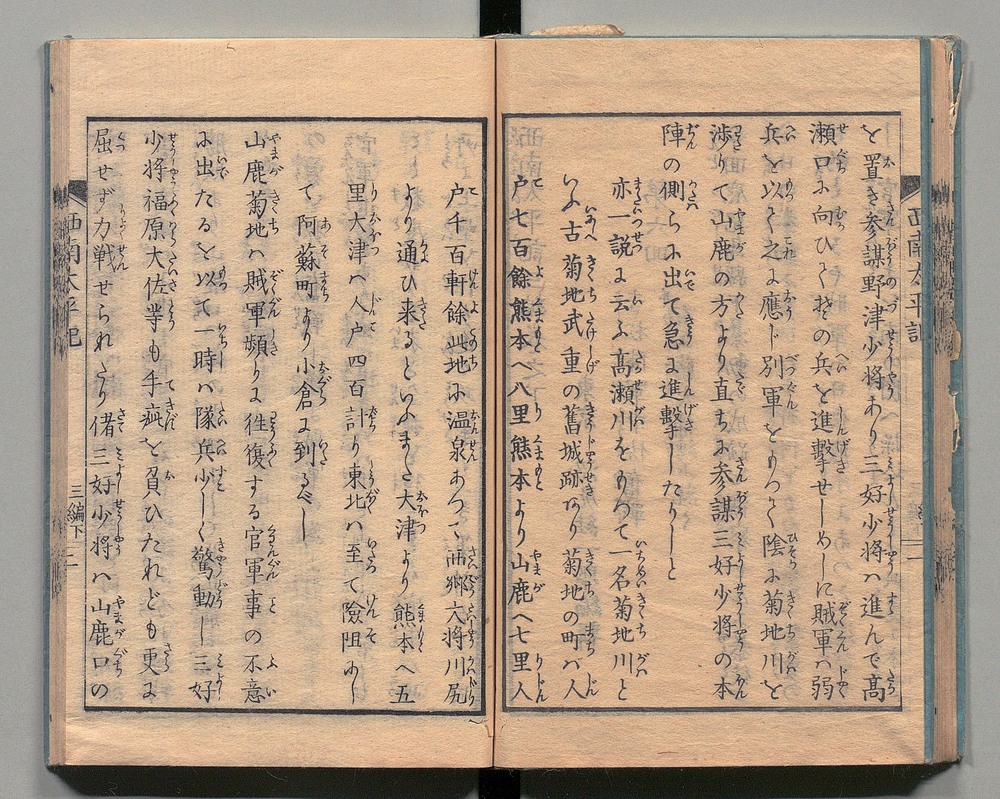 を置き参謀野津少将あり三好少将ハ進んで髙
瀬口に向ひて其の兵を進撃せしめしに賊軍ハ弱
兵を以て之に應じ別軍をもつて陰に菊地川を
渉りて山鹿の方より直ちに参謀三好少将の本
陣の側らに出て急に進撃したりしと
亦一説に云ふ髙瀬川をもつて一名菊地川と
いふ古へ菊地武重の舊城跡あり菊地の町ハ人
户七百餘熊本へ八里熊本より山鹿へ七里人
户千百軒餘此地に温泉あつて西郷大将川尻
より通ひ来るといふまた大津より熊本へ五
里大津ハ人户四百計り東北ハ至て險阻なし
て阿蘇町より小倉に到るべし
山鹿菊地ハ賊軍頻りに徃復する官軍事の不意
に出たるを以て一時ハ隊兵少しく驚動し三好
少将福原大佐等も手疵を負ひたれども更に
屈せず力戦せられたり偖三好少将ハ山鹿口の
西南太平記
三編下
二